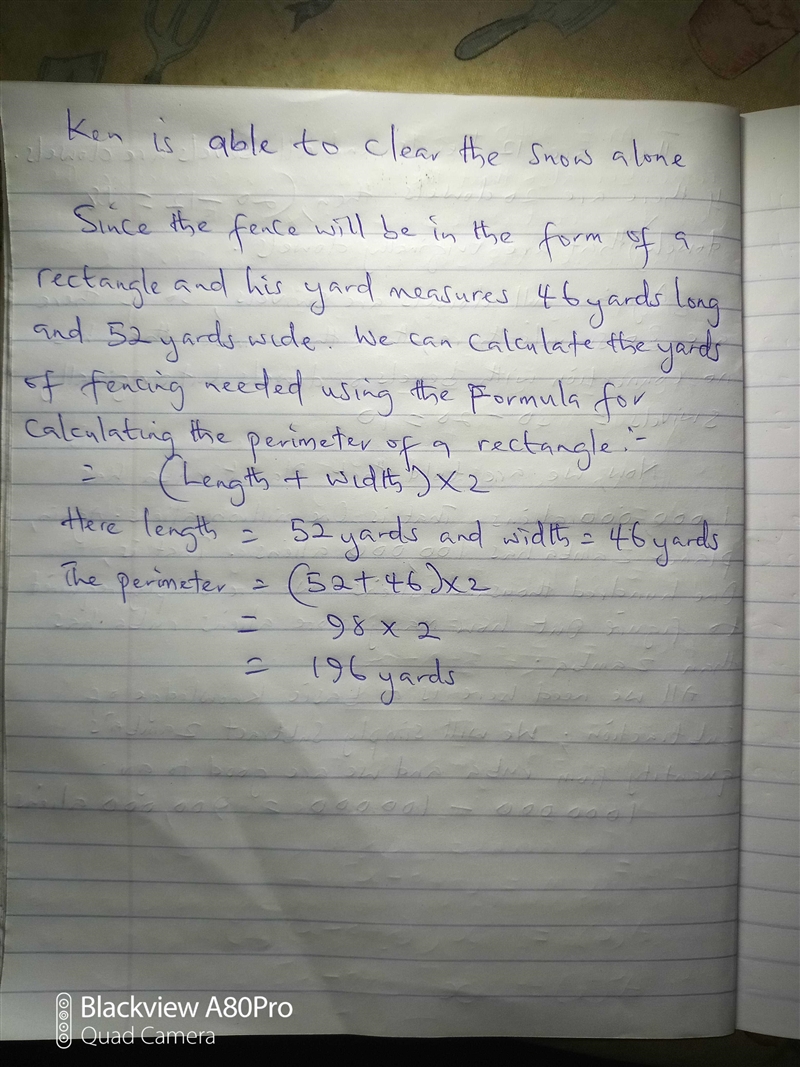 Ken is able to clear the snow alone
Since the fence will be in the form of a
rectangle and his yard measures 46 yards long
and 52 yards wide. We can calculate the yards
of fencing needed using the Formula for
calculating the perimeter of a rectangle:-
= (Length + width) x 2
Here length = 52 yards and width = 46 yards
The perimeter = (52 + 46) x 2
= 98 x 2
= 196 yards
Blackview A80Pro
Quad Camera